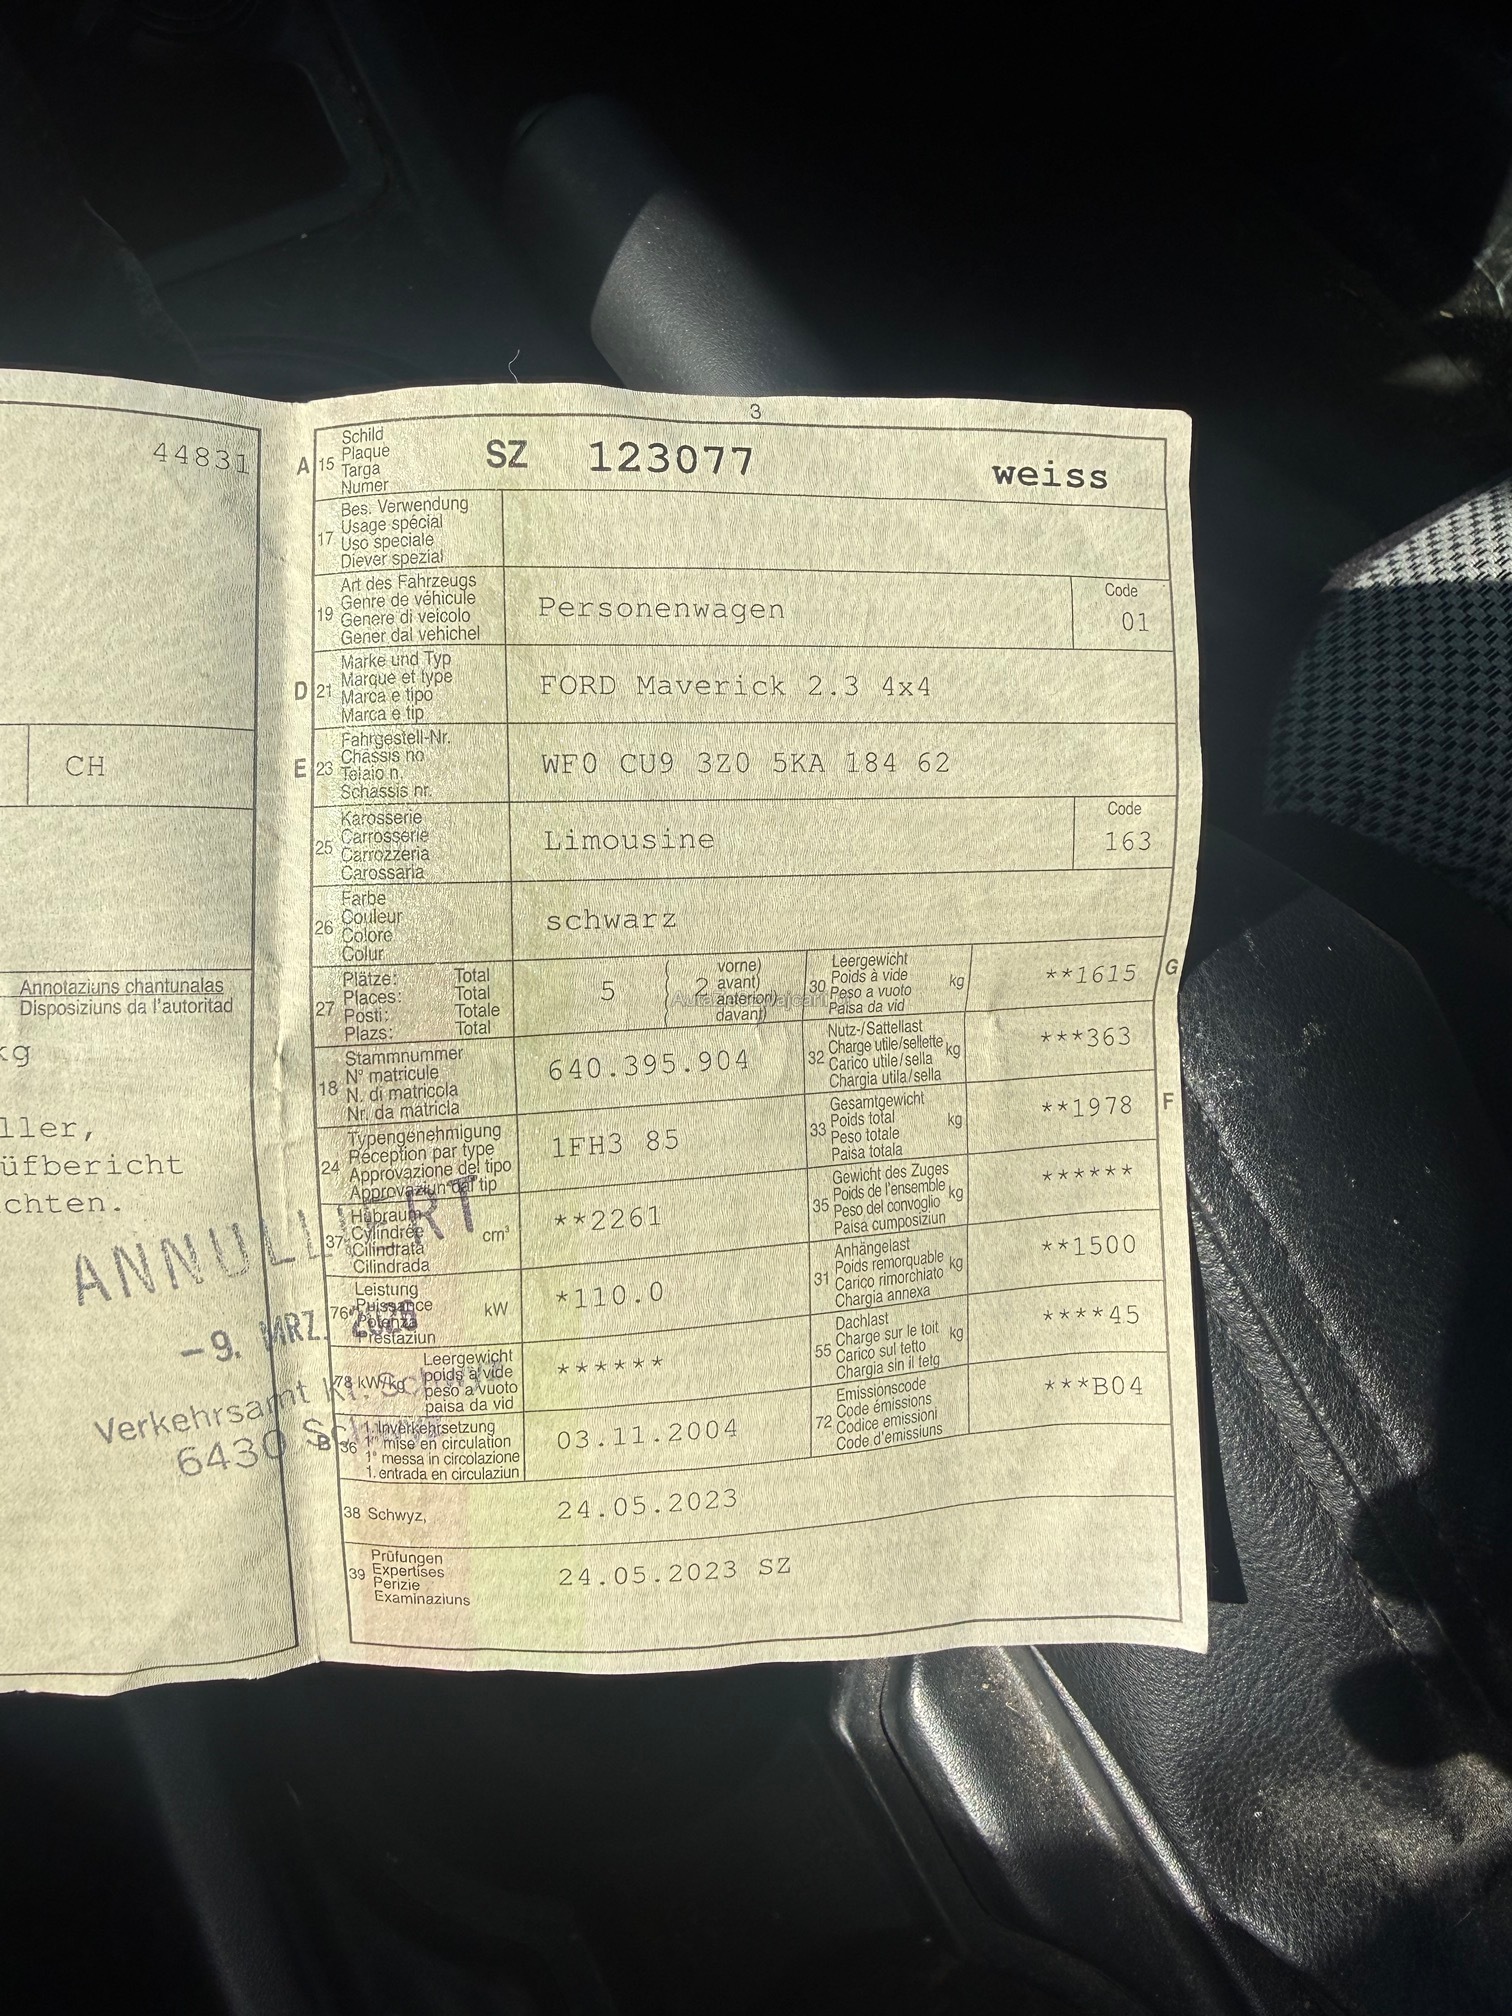 3
44831
A 15 Schild
Plaque
Targa
Numer
SZ 123077 weiss
17 Bes. Verwendung
Usage spécial
Uso speciale
Diever spezial
19 Art des Fahrzeugs
Genre de véhicule
Genere di veicolo
Gener dal vehichel
Personenwagen
Code
01
D 21 Marke und Typ
Marque et type
Marca e tipo
Marca e tip
FORD Maverick 2.3 4x4
E 23 Fahrgestell-Nr.
Châssis no
Telaio n.
Schassis nr.
WF0 CU9 3Z0 5KA 184 62
CH
25 Karosserie
Carrosserie
Carrozzeria
Carossaria
Limousine
Code
163
26 Farbe
Couleur
Colore
Colur
schwarz
27 Plätze: Total
Places: Total
Posti: Totale
Plazs: Total
5
2
vorne)
avant)
anterion)
davant)
30 Leergewicht
Poids à vide
Peso a vuoto
Paisa da vid
kg
**1615
G
Annotaziuns chantunalas
Disposiziuns da l'autoritad
kg
ller,
üfbericht
chten.
18 Stammnummer
N° matricule
N. di matricola
Nr. da matricla
640.395.904
32 Nutz-/Sattellast
Charge utile/sellette
Carico utile/sella
Chargia utila/sella
kg
***363
24 Typengenehmigung
Réception par type
Approvazione del tipo
Approvaziun dal tip
1FH3 85
33 Gesamtgewicht
Poids total
Peso totale
Paisa totala
kg
**1978
F
37 Hubraum
Cylindrée
Cilindrata
Cilindrada
cm³
**2261
35 Gewicht des Zuges
Poids de l'ensemble
Peso del convoglio
Paisa cumposiziun
kg
******
76 Leistung
Puissance
Potenza
Prestaziun
kW
*110.0
31 Anhängelast
Poids remorquable
Carico rimorchiato
Chargia annexa
kg
**1500
78 kW/kg
Leergewicht
poids à vide
peso a vuoto
paisa da vid
******
55 Dachlast
Charge sur le toit
Carico sul tetto
Chargia sin il tetg
kg
****45
B 36 1. Inverkehrsetzung
1re mise en circulation
1a messa in circolazione
1. entrada en circulaziun
03.11.2004
72 Emissionscode
Code émissions
Codice emissioni
Code d'emissiuns
***B04
38 Schwyz,
24.05.2023
39 Prüfungen
Expertises
Perizie
Examinaziuns
24.05.2023 SZ
ANNULLIERT
-9. MRZ. 2026
Verkehrsamt Kt. Schwyz
6430 Schwyz